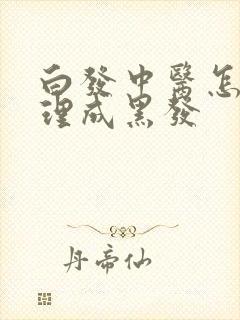 白發中醫怎
理成黑發
丹帝仙